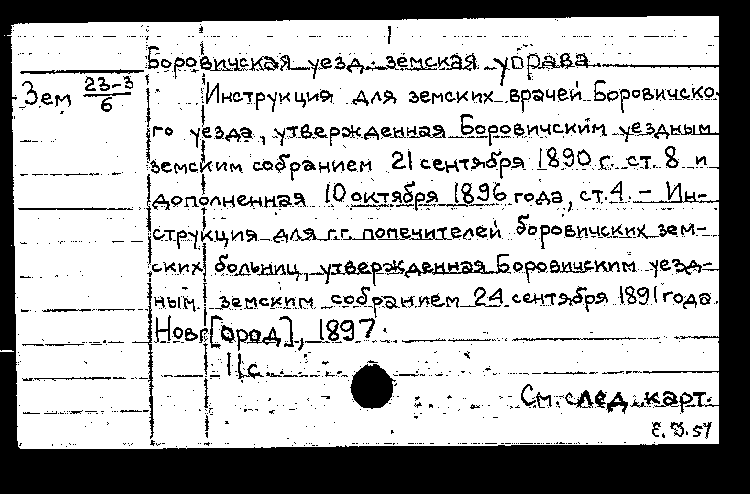 Боровичская уезд. земская управа
Зем 23-3/6
Инструкция для земских врачей Боровичско-
го уезда, утвержденная Боровичским уездным
земским собранием 21 сентября 1890 г. ст. 8 и
дополненная 10 октября 1896 года, ст. 4. – Ин-
струкция для г.г. попечителей боровичских зем-
ских больниц, утвержденная Боровичским уезд-
ным земским собранием 24 сентября 1891 года.
Новг[ород], 1897.
11 с.
См. след. карт.